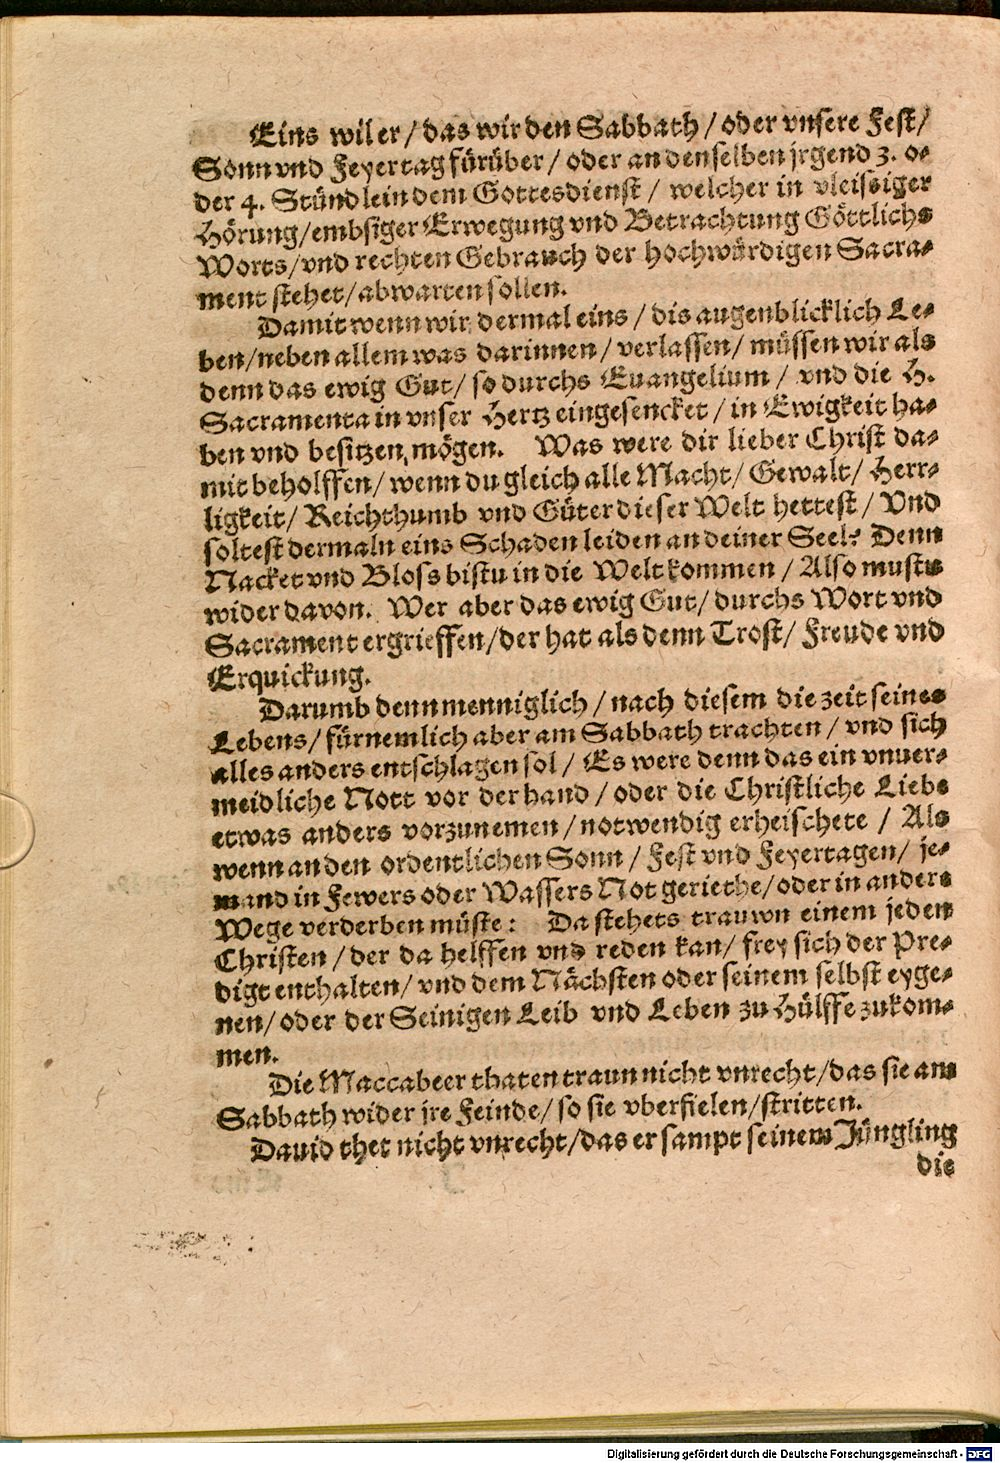 Eins wil er / das wir den Sabbath / oder vnsere Fest /
Sonn vnd Feyertag fürüber / oder an denselben jrgend 3. o-
der 4. Stündlein dem Gottesdienst / welcher in vleissiger
Hörung / embsiger Erwegung vnd Betrachtung Göttlichs
Worts / vnd rechten Gebrauch der hochwürdigen Sacra-
ment stehet / abwarten sollen.
Damit wenn wir dermal eins / dis augenblicklich Le-
ben / neben allem was darinnen / verlassen / müssen wir als
denn das ewig Gut / so durchs Euangelium / vnd die H.
Sacramenta in vnser Hertz eingesencket / in Ewigkeit ha-
ben vnd besitzen mögen. Was were dir lieber Christ da-
mit beholffen / wenn du gleich alle Macht / Gewalt / Herr-
ligkeit / Reichthumb vnd Güter dieser Welt hettest / Vnd
soltest dermaln eins Schaden leiden an deiner Seel? Denn
Nacket vnd Bloss bistu in die Welt kommen / Also mustu
wider davon. Wer aber das ewig Gut / durchs Wort vnd
Sacrament ergrieffen / der hat als denn Trost / Freude vnd
Erquickung.
Darumb denn menniglich / nach diesem die zeit seines
Lebens / fürnemlich aber am Sabbath trachten / vnd sich
alles anders entschlagen sol / Es were denn das ein vnuer-
meidliche Nott vor der hand / oder die Christliche Liebe
etwas anders vorzunemen / notwendig erheischete / Als
wenn an den ordentlichen Sonn / Fest vnd Feyertagen / je-
mand in Fewers oder Wassers Not geriethe / oder in andere
Wege verderben müste: Da stehets trauwn einem jeden
Christen / der da helffen vnd reden kan / frey sich der Pre-
digt enthalten / vnd dem Nächsten oder seinem selbst eyge-
nen / oder der Seinigen Leib vnd Leben zu Hülffe zukom-
men.
Die Maccabeer thaten traun nicht vnrecht / das sie am
Sabbath wider jre Feinde / so sie vberfielen / stritten.
Dauid thet nicht vnrecht / das er sampt seinem Jüngling
die
Digitalisierung gefördert durch die Deutsche Forschungsgemeinschaft - DFG